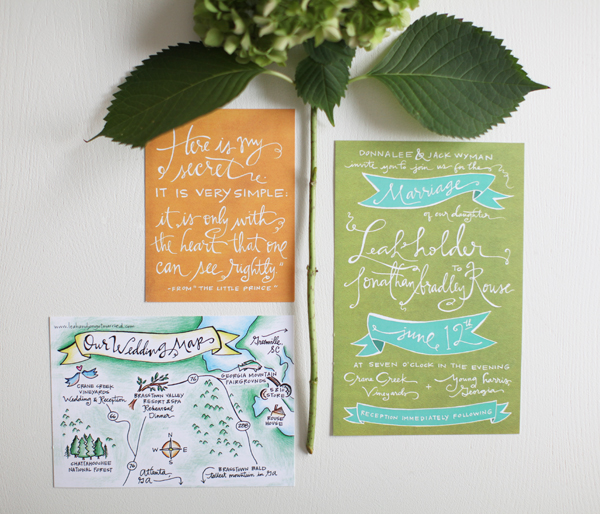 Here is my
secret
IT IS VERY SIMPLE:
it is only with
the heart that one
can see rightly."
-FROM "THE LITTLE PRINCE"
DONNALEE & JACK WYMAN
invite you to join us for the
Marriage
of our daughter
Leah holder
to
Jonathan bradley Rouse
june 12th
AT SEVEN O'CLOCK IN THE EVENING
Crane Creek
Vineyards
+
Young harris
Georgia
RECEPTION IMMEDIATELY FOLLOWING
Our Wedding Map
Greenville
SC
CRANE CREEK
VINEYARDS
Wedding & Reception
BRASSTOWN VALLEY
RESORT & SPA
Rehearsal
Dinner
76
GEORGIA MOUNTAIN
FAIRGROUNDS
STORE
ROUSE
HOUSE
66
CHATTAHOOCHEE
NATIONAL FOREST
76
Atlanta
GA
N
W
E
S
BRASSTOWN BALD
tallest mountain in GA